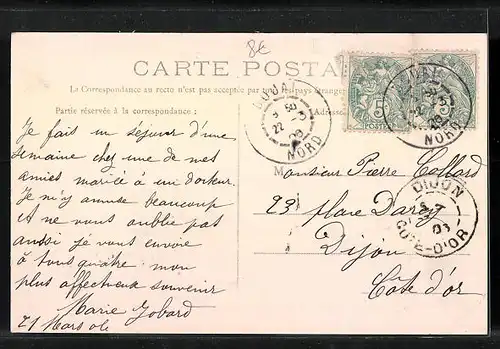 8€
CARTE POSTA
La Correspondance au recto n'est pas acceptée par tous les pays étrangers
Partie réservée à la correspondance:
Adresse
DOUAI
3 50
22 3
NORD
5
POSTE
5
NORD
Je fais un séjour d'une
semaine chez une de mes
amies mariée à un docteur.
Je m'y amuse beaucoup
et ne vous oublie pas
aussi je vous envoie
à tous quatre mon
plus affectueux souvenir
Marie Jobard
21 Mars 06
M
Monsieur Pierre Collard
23, place Darcy
Dijon
Côte d'or
DIJON
COTE-D'OR